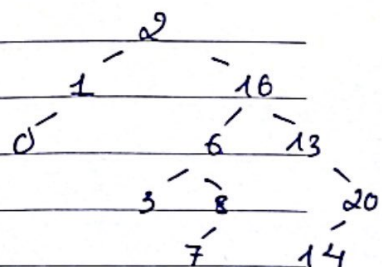 2
1 16
0 6 13
3 8 20
7 14